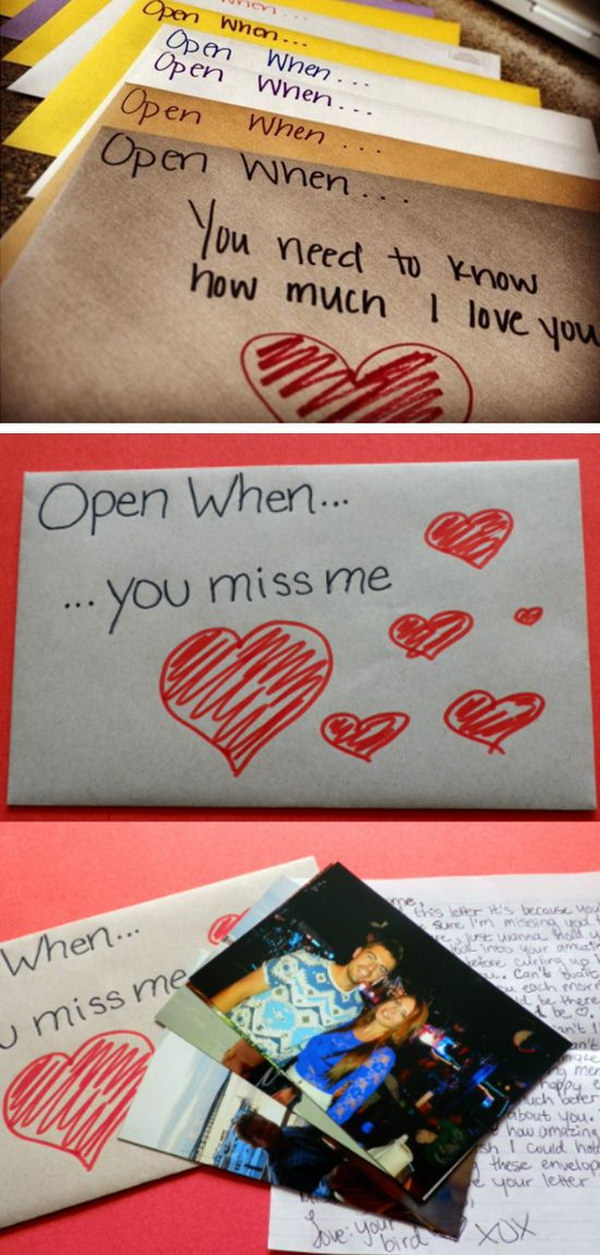 when...
Open When...
Open When...
Open When...
Open When...
Open When...
You need to know
how much I love you
Open When...
...you miss me
When...
u miss me
me,
this letter it's because you
sure I'm missing you
just wanna
into your
before curling up
Can't
each morn
be there
be ♡.
can't
happy
much better
about you.
how amazing
sh I could hold
these envelope
your letter
love: your
bird XOX